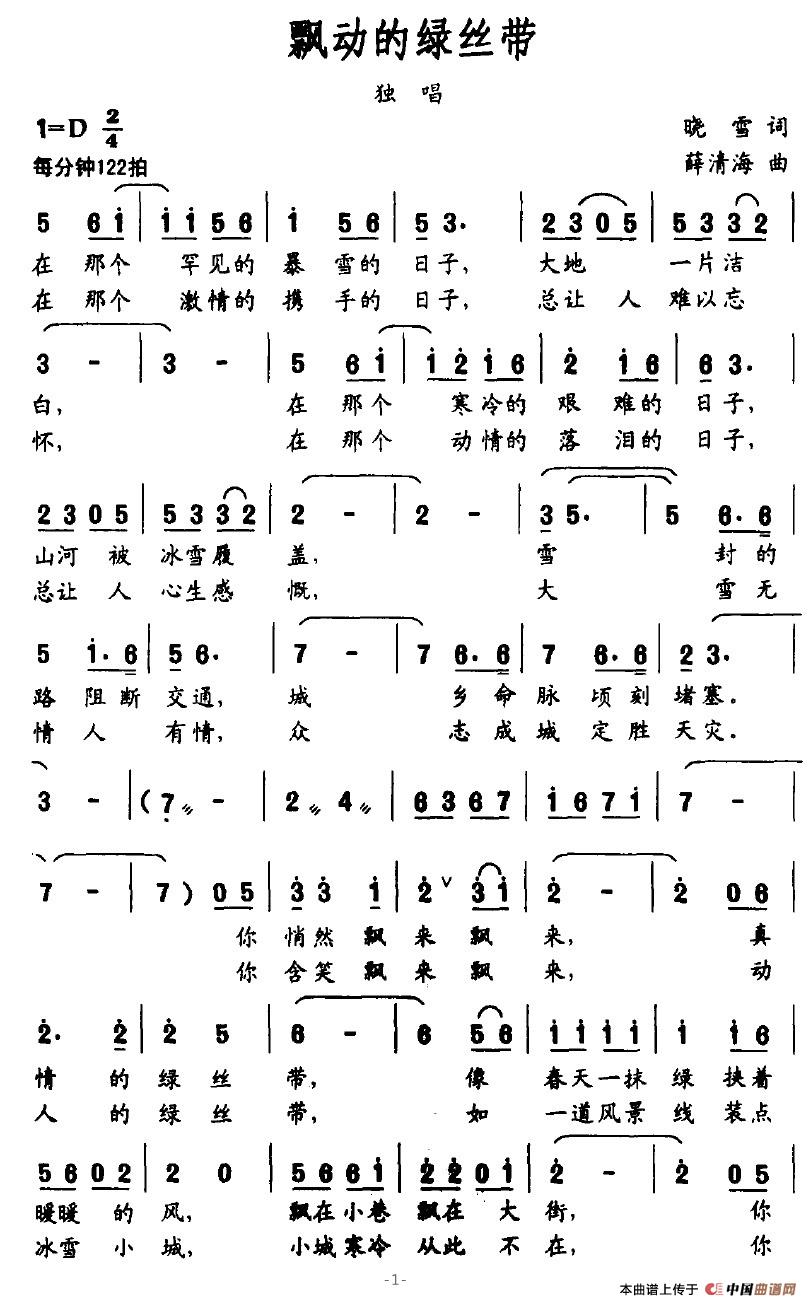 飘动的绿丝带
独 唱
1=D 2/4
晓 雪 词
每分钟122拍
薛清海 曲
5 6 i | i i 5 6 | i 5 6 | 5 3. | 2 3 0 5 | 5 3 3 2 |
在 那个 罕见的 暴 雪的 日子, 大地 一片洁
在 那个 激情的 携 手的 日子, 总让 人 难以忘
3 - | 3 - | 5 6 i | i 2 i 6 | 2 i 6 | 6 3. |
白, 在 那个 寒冷的 艰 难的 日子,
怀, 在 那个 动情的 落 泪的 日子,
2 3 0 5 | 5 3 3 2 | 2 - | 2 - | 3 5. | 5 6. 6 |
山河 被 冰雪履 盖, 雪 封的
总让 人 心生感 慨, 大 雪无
5 i. 6 | 5 6. | 7 - | 7 6. 6 | 7 6. 6 | 2 3. |
路 阻断 交通, 城 乡命 脉 顷刻 堵塞.
情 人 有情, 众 志成 城 定胜 天灾.
3 - | (7 - | 2 4. | 6 3 6 7 | i 6 7 i | 7 - |
7 - | 7) 0 5 | 3 3 i | 2 ∨ 3 i | 2 - | 2 0 6 |
你 悄然 飘 来 飘 来, 真
你 含笑 飘 来 飘 来, 动
2. 2 | 2 5 | 6 - | 6 5 6 | i i i i | i i 6 |
情 的 绿 丝 带, 像 春天一抹 绿 挟着
人 的 绿 丝 带, 如 一道风景 线 装点
5 6 0 2 | 2 0 | 5 6 6 i | 2 2 0 i | 2 - | 2 0 5 |
暖暖 的 风, 飘在小巷 飘在 大 街, 你
冰雪 小 城, 小城寒冷 从此 不 在, 你
-1-
本曲谱上传于 中国曲谱网